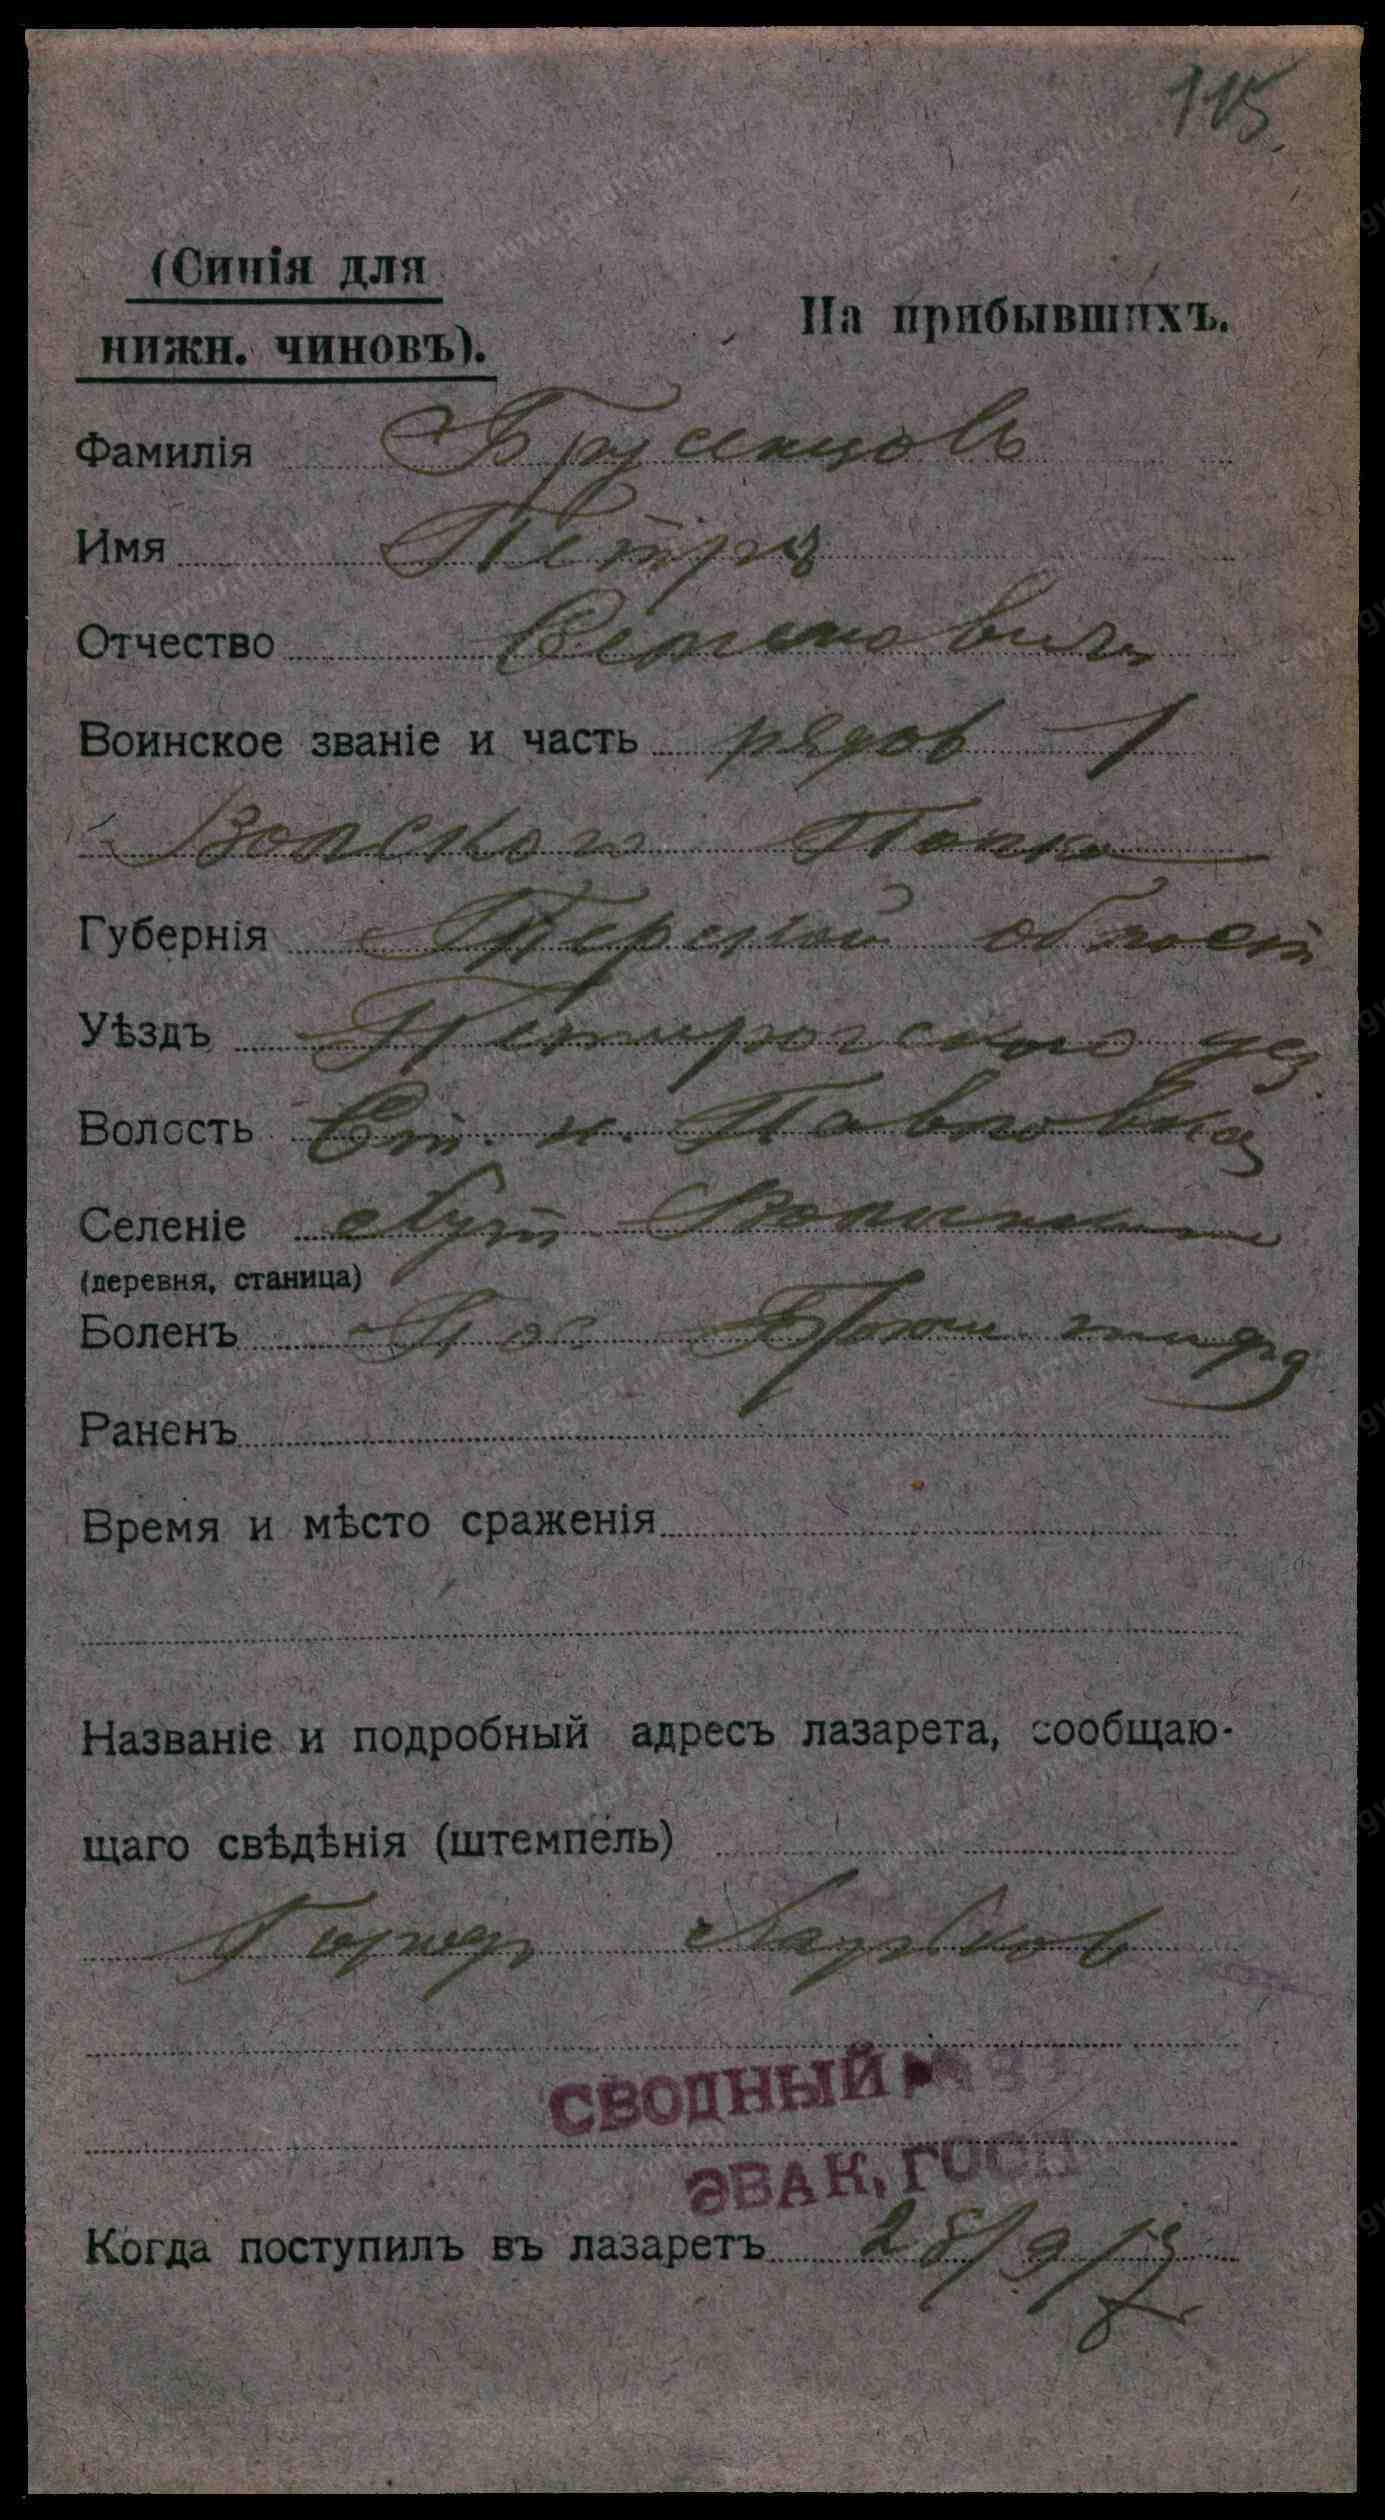 115.
(Синія для
нижн. чиновъ).
На прибывшихъ.
Фамилія Брусенцовъ
Имя Петръ
Отчество Семеновичъ
Воинское званіе и часть рядов 1
Волского Полка
Губернія Терской област
Уѣздъ уез
Волость Ст. н. Павловка
Селеніе Хут
(деревня, станица)
Боленъ Брюш. тифъ
Раненъ
Время и мѣсто сраженія
Названіе и подробный адресъ лазарета, сообщаю-
щаго свѣдѣнія (штемпель)
Город Харьков
СВОДНЫЙ
ЭВАК, ГОСП
Когда поступилъ въ лазаретъ 28/9/17